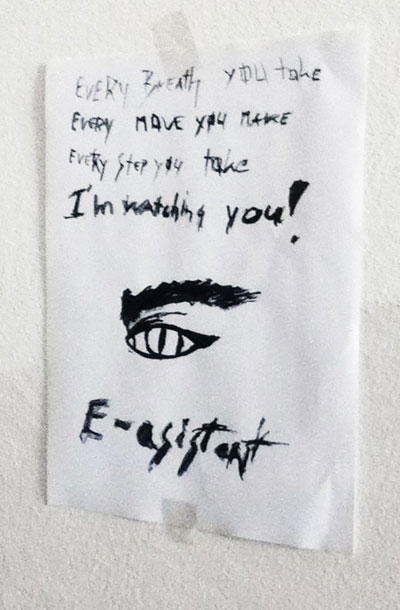 EVERY BREATH YOU take
EVERY MOVE YOU MAKE
EVERY STEP YOU take
I'm watching you!
E-asistent